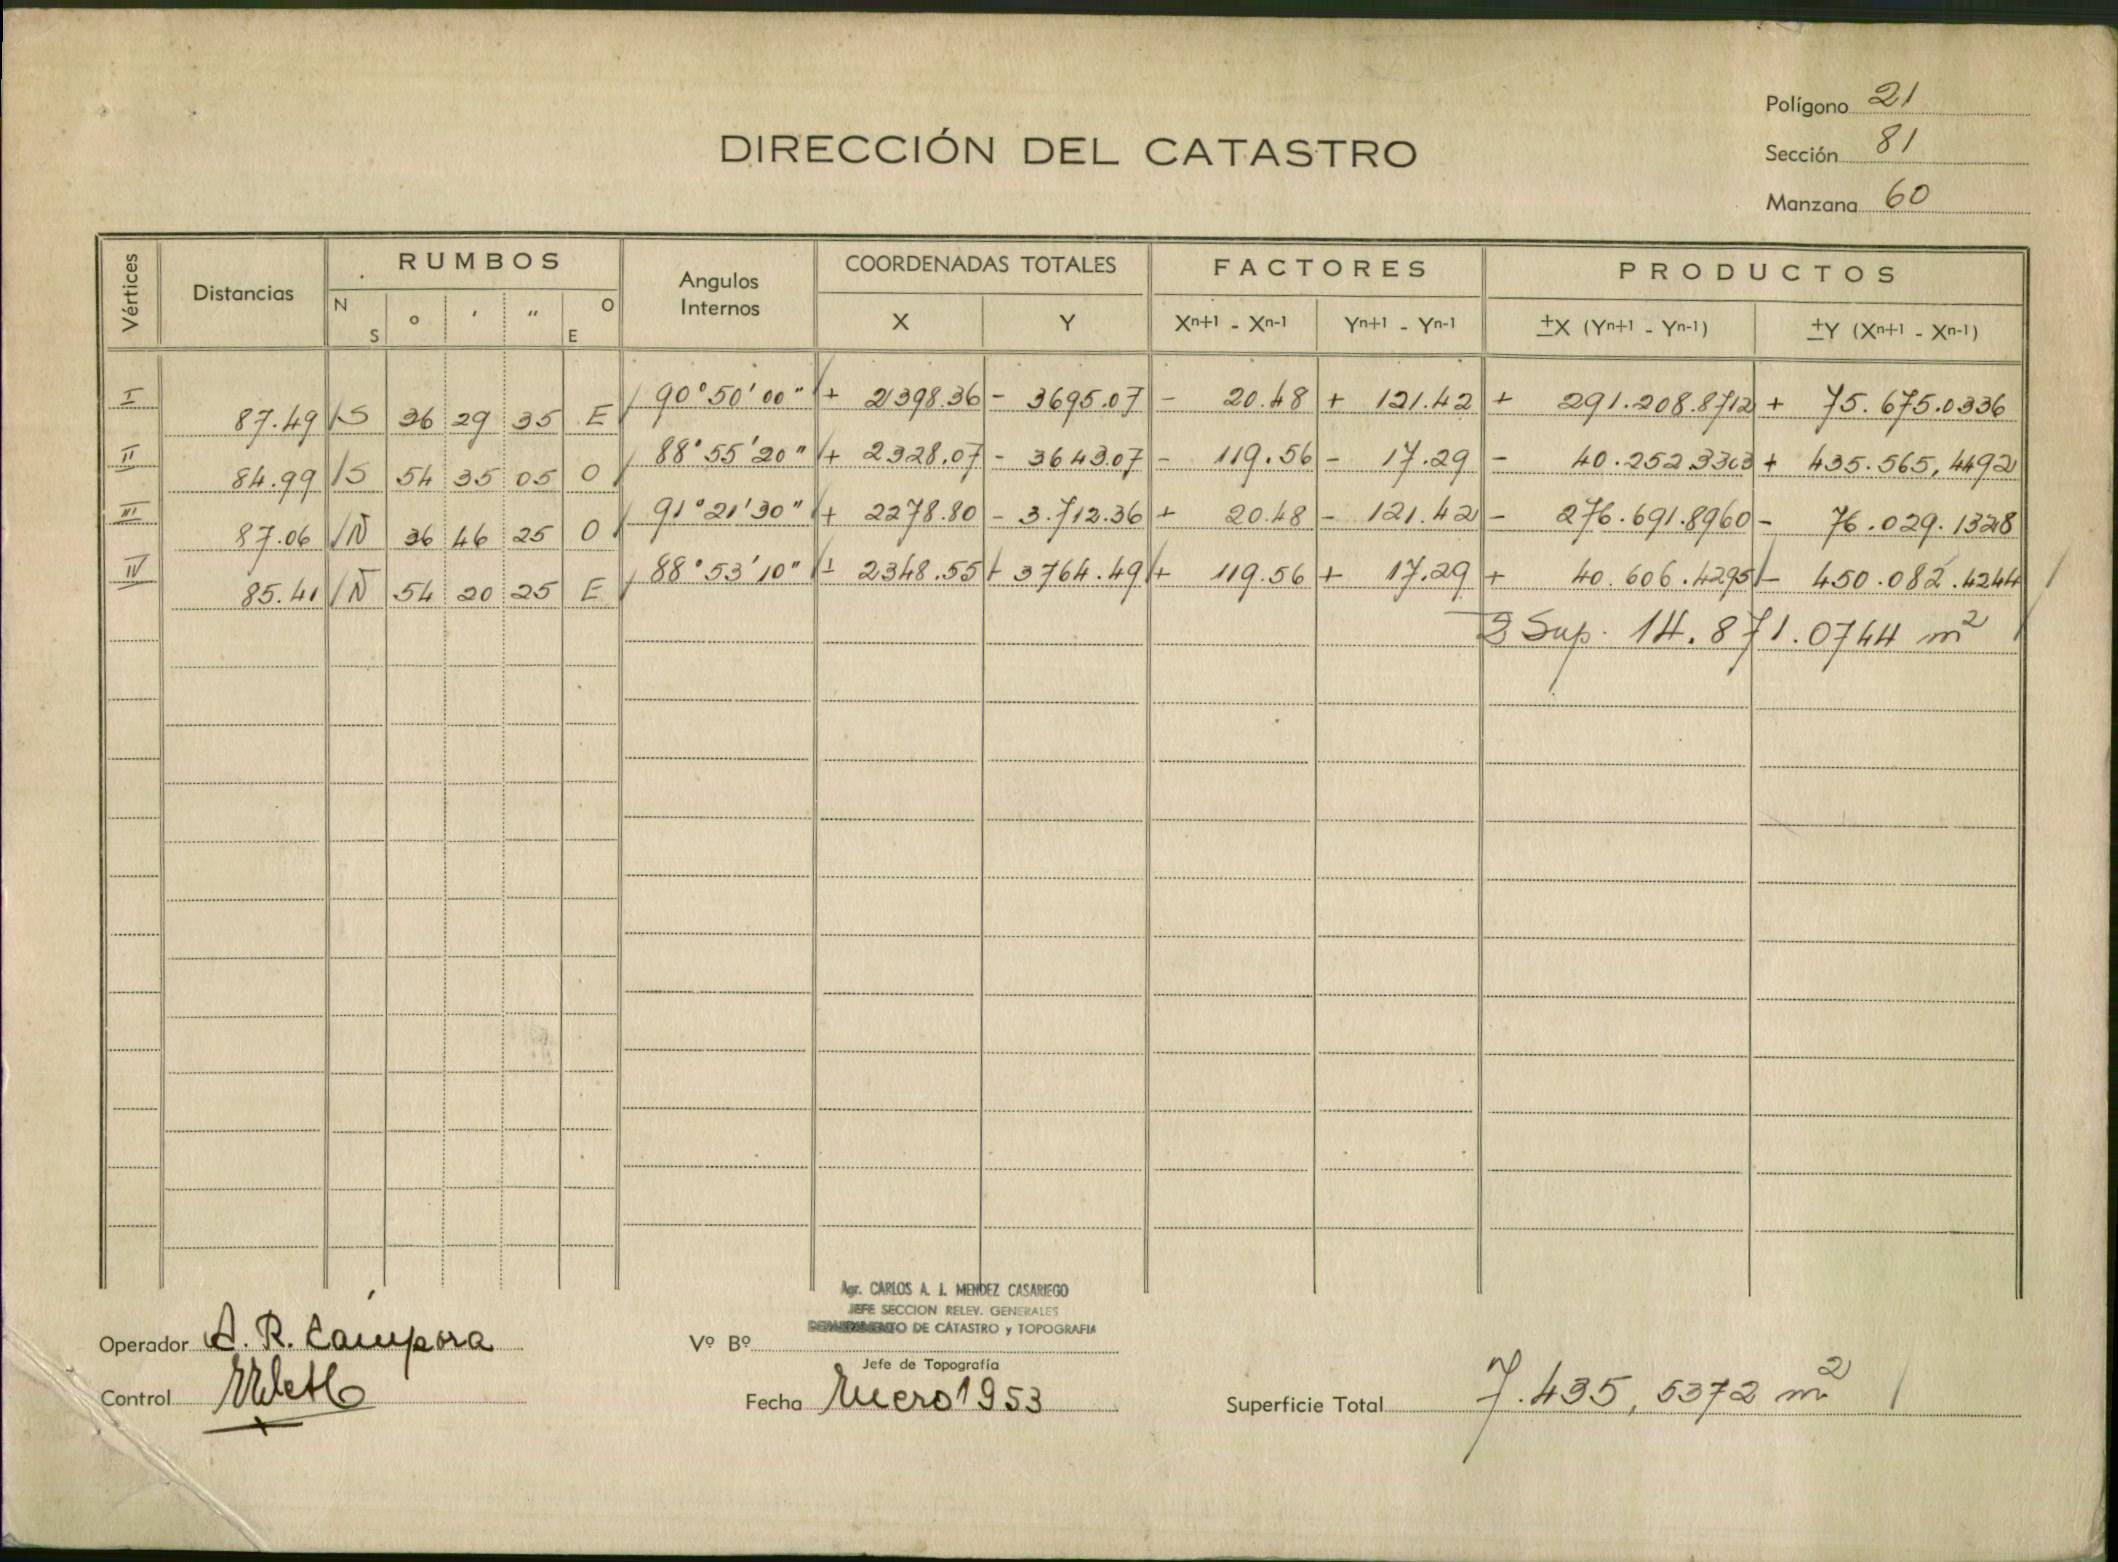 Polígono 21
DIRECCIÓN DEL CATASTRO
Sección 81
Manzana 60
Vértices Distancias RUMBOS Angulos Internos COORDENADAS TOTALES FACTORES PRODUCTOS
N S o ' " O E X Y Xn+1 - Xn-1 Yn+1 - Yn-1 ±X (Yn+1 - Yn-1) ±Y (Xn+1 - Xn-1)
I 87.49 S 36 29 35 E 90°50'00" + 2398.36 - 3695.07 - 20.48 + 121.42 + 291.208.8712 + 75.675.0336
II 84.99 S 54 35 05 O 88°55'20" + 2328.07 - 3643.07 - 119.56 - 17.29 - 40.252.3303 + 435.565,4492
III 87.06 N 36 46 25 O 91°21'30" + 2278.80 - 3.712.36 + 20.48 - 121.42 - 276.691.8960 - 76.029.1328
IV 85.41 N 54 20 25 E 88°53'10" + 2348.55 - 3764.49 + 119.56 + 17.29 + 40.606.4295 - 450.082.4244
2 Sup. 14.871.0744 m²
Agr. CARLOS A. J. MENDEZ CASARIEGO
JEFE SECCION RELEV. GENERALES
DEPARTAMENTO DE CATASTRO y TOPOGRAFIA
Operador A. R. Cámpora
Vº Bº
Jefe de Topografía
Control
Fecha Enero 1953
Superficie Total 7.435,5372 m²